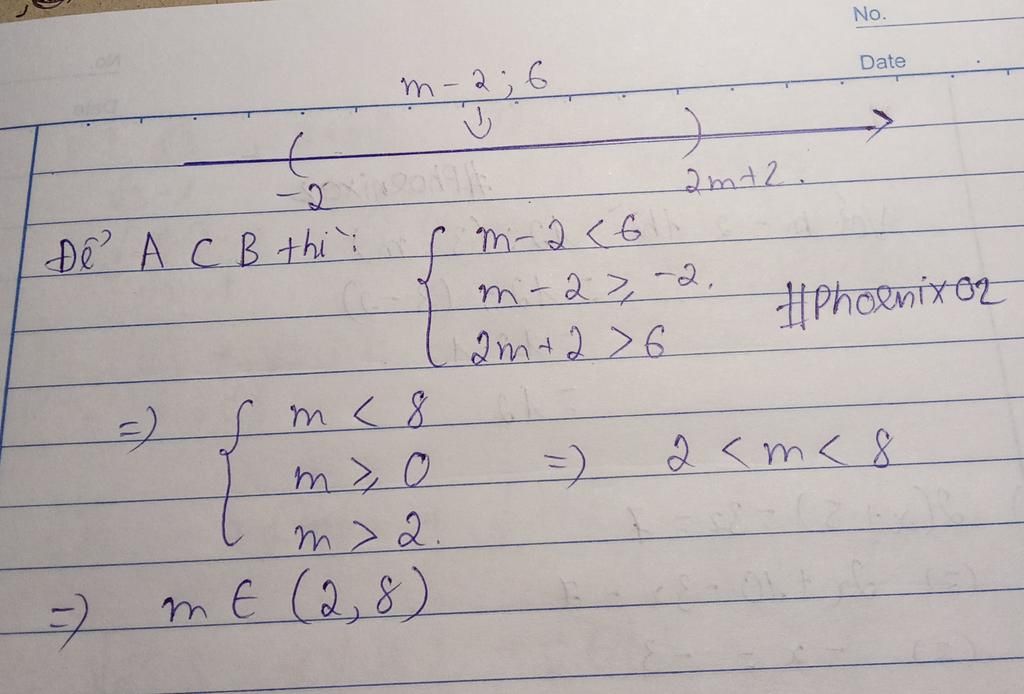 No.
Date
m-2;6
-2
2m+2.
Để A ⊂ B thì:
m-2 < 6
m-2 ≥ -2.
2m+2 > 6
#Phoenix02
=>
m < 8
m ≥ 0 => 2 < m < 8
m > 2.
=> m ∈ (2,8)